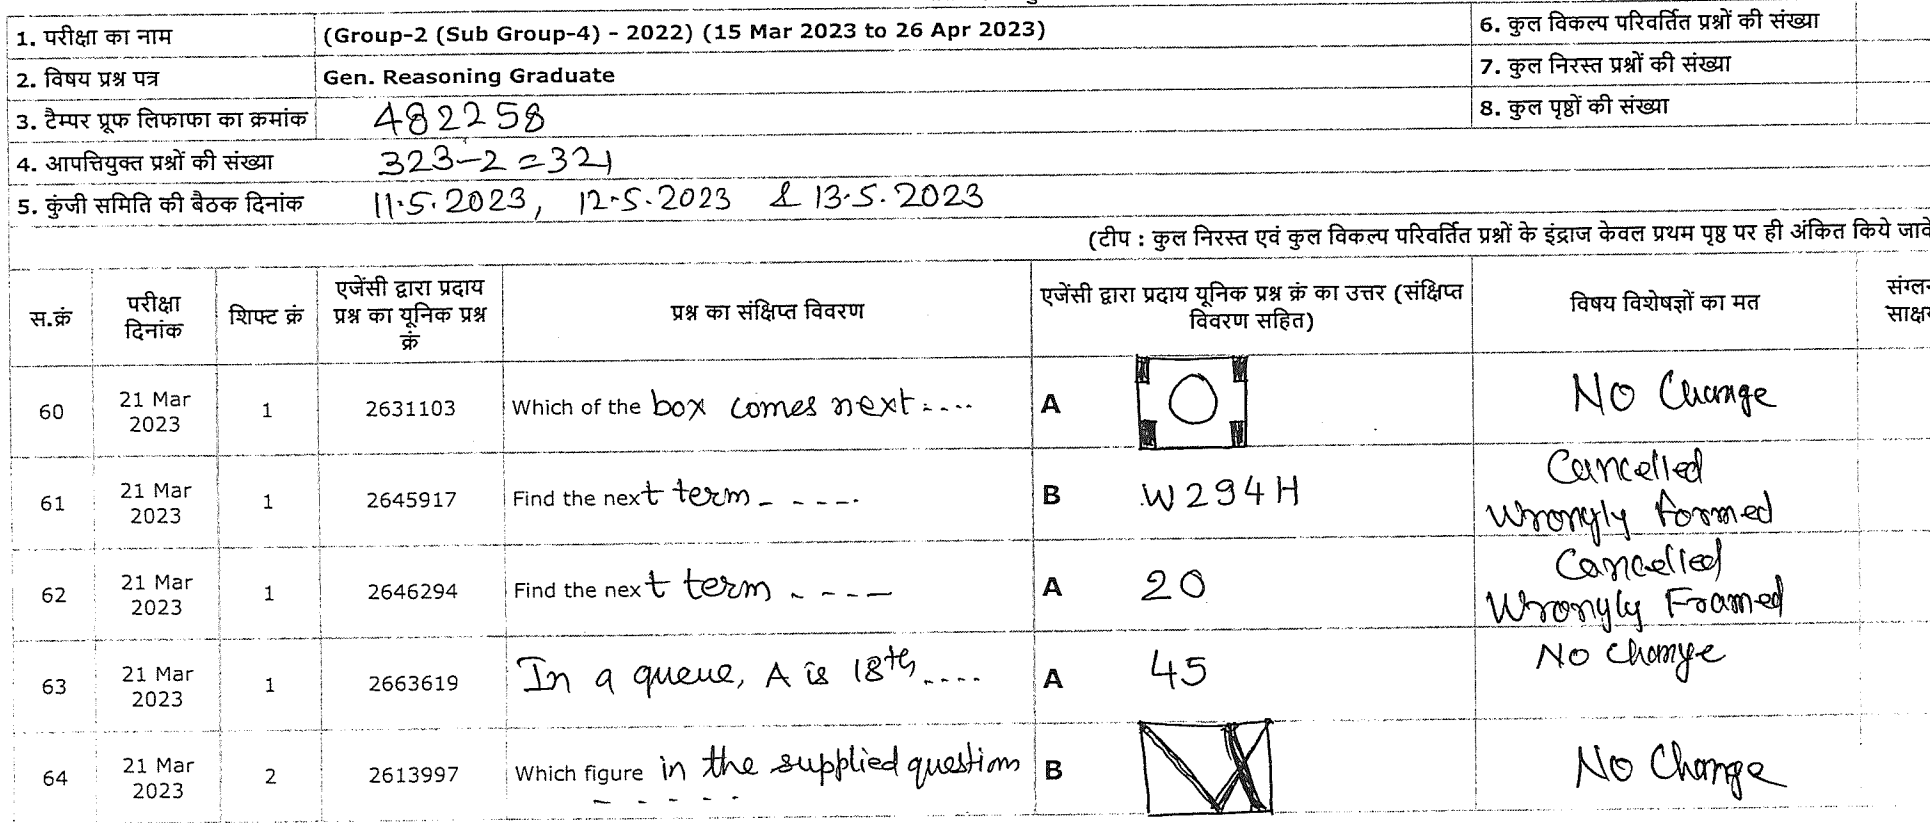 1. परीक्षा का नाम (Group-2 (Sub Group-4) - 2022) (15 Mar 2023 to 26 Apr 2023) 6. कुल विकल्प परिवर्तित प्रश्नों की संख्या
2. विषय प्रश्न पत्र Gen. Reasoning Graduate 7. कुल निरस्त प्रश्नों की संख्या
3. टैम्पर प्रूफ लिफाफा का क्रमांक 482258 8. कुल पृष्ठों की संख्या
4. आपत्तियुक्त प्रश्नों की संख्या 323-2=321
5. कुंजी समिति की बैठक दिनांक 11.5.2023, 12.5.2023 & 13.5.2023
(टीप : कुल निरस्त एवं कुल विकल्प परिवर्तित प्रश्नों के इंद्राज केवल प्रथम पृष्ठ पर ही अंकित किये जावे
स.क्रं परीक्षा दिनांक शिफ्ट क्रं एजेंसी द्वारा प्रदाय प्रश्न का यूनिक प्रश्न क्रं प्रश्न का संक्षिप्त विवरण एजेंसी द्वारा प्रदाय यूनिक प्रश्न क्रं का उत्तर (संक्षिप्त विवरण सहित) विषय विशेषज्ञों का मत
60 21 Mar 2023 1 2631103 Which of the box comes next .... A No Change
61 21 Mar 2023 1 2645917 Find the next term - - - -. B W294H Cancelled Wrongly Formed
62 21 Mar 2023 1 2646294 Find the next term - - - - A 20 Cancelled Wrongly Framed
63 21 Mar 2023 1 2663619 In a queue, A is 18th .... A 45 No Change
64 21 Mar 2023 2 2613997 Which figure in the supplied question - - - - - B No Change